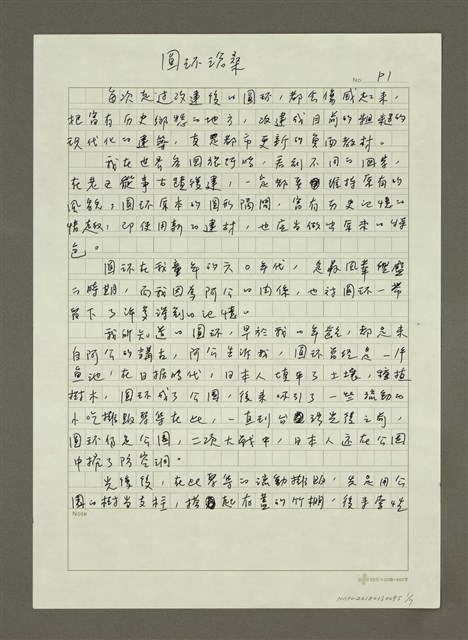 圓环滄桑
No. P1
每次走过改建後的圓环，都会傷感起来，
把富有历史鄉愁的地方，改建成目前的粗糙的
现代化的建築，真是都市更新的負面教材。
我在世界各国旅行時，看到不同的国家，
在老区從事古蹟復建，一定都要維持原有的
風貌，圓环原本的圓形隔間，富有历史记憶的
情趣，即使用新的建材，也应当做出原来的特
色。
圓环在我童年的六〇年代，是最風華鼎盛
的時期，而我因為阿公的関係，也对圓环一帶
留下了许多深刻的记憶。
我所知道的圓环，早於我的年齡，都是来
自阿公的講古，阿公告诉我，圓环曾经是一片
魚池，在日據時代，日本人填平了土壤，種植
樹木，圓环成了公園，後来吸引了一些流動的
小吃攤販聚集在此，一直到台灣光復之前，
圓环仍是公園，二次大战中，日本人还在公園
中挖了防空洞。
光復後，在此聚集的流動攤販，先是用公
園的樹当支柱，搭起有蓋的竹棚，後来
Note